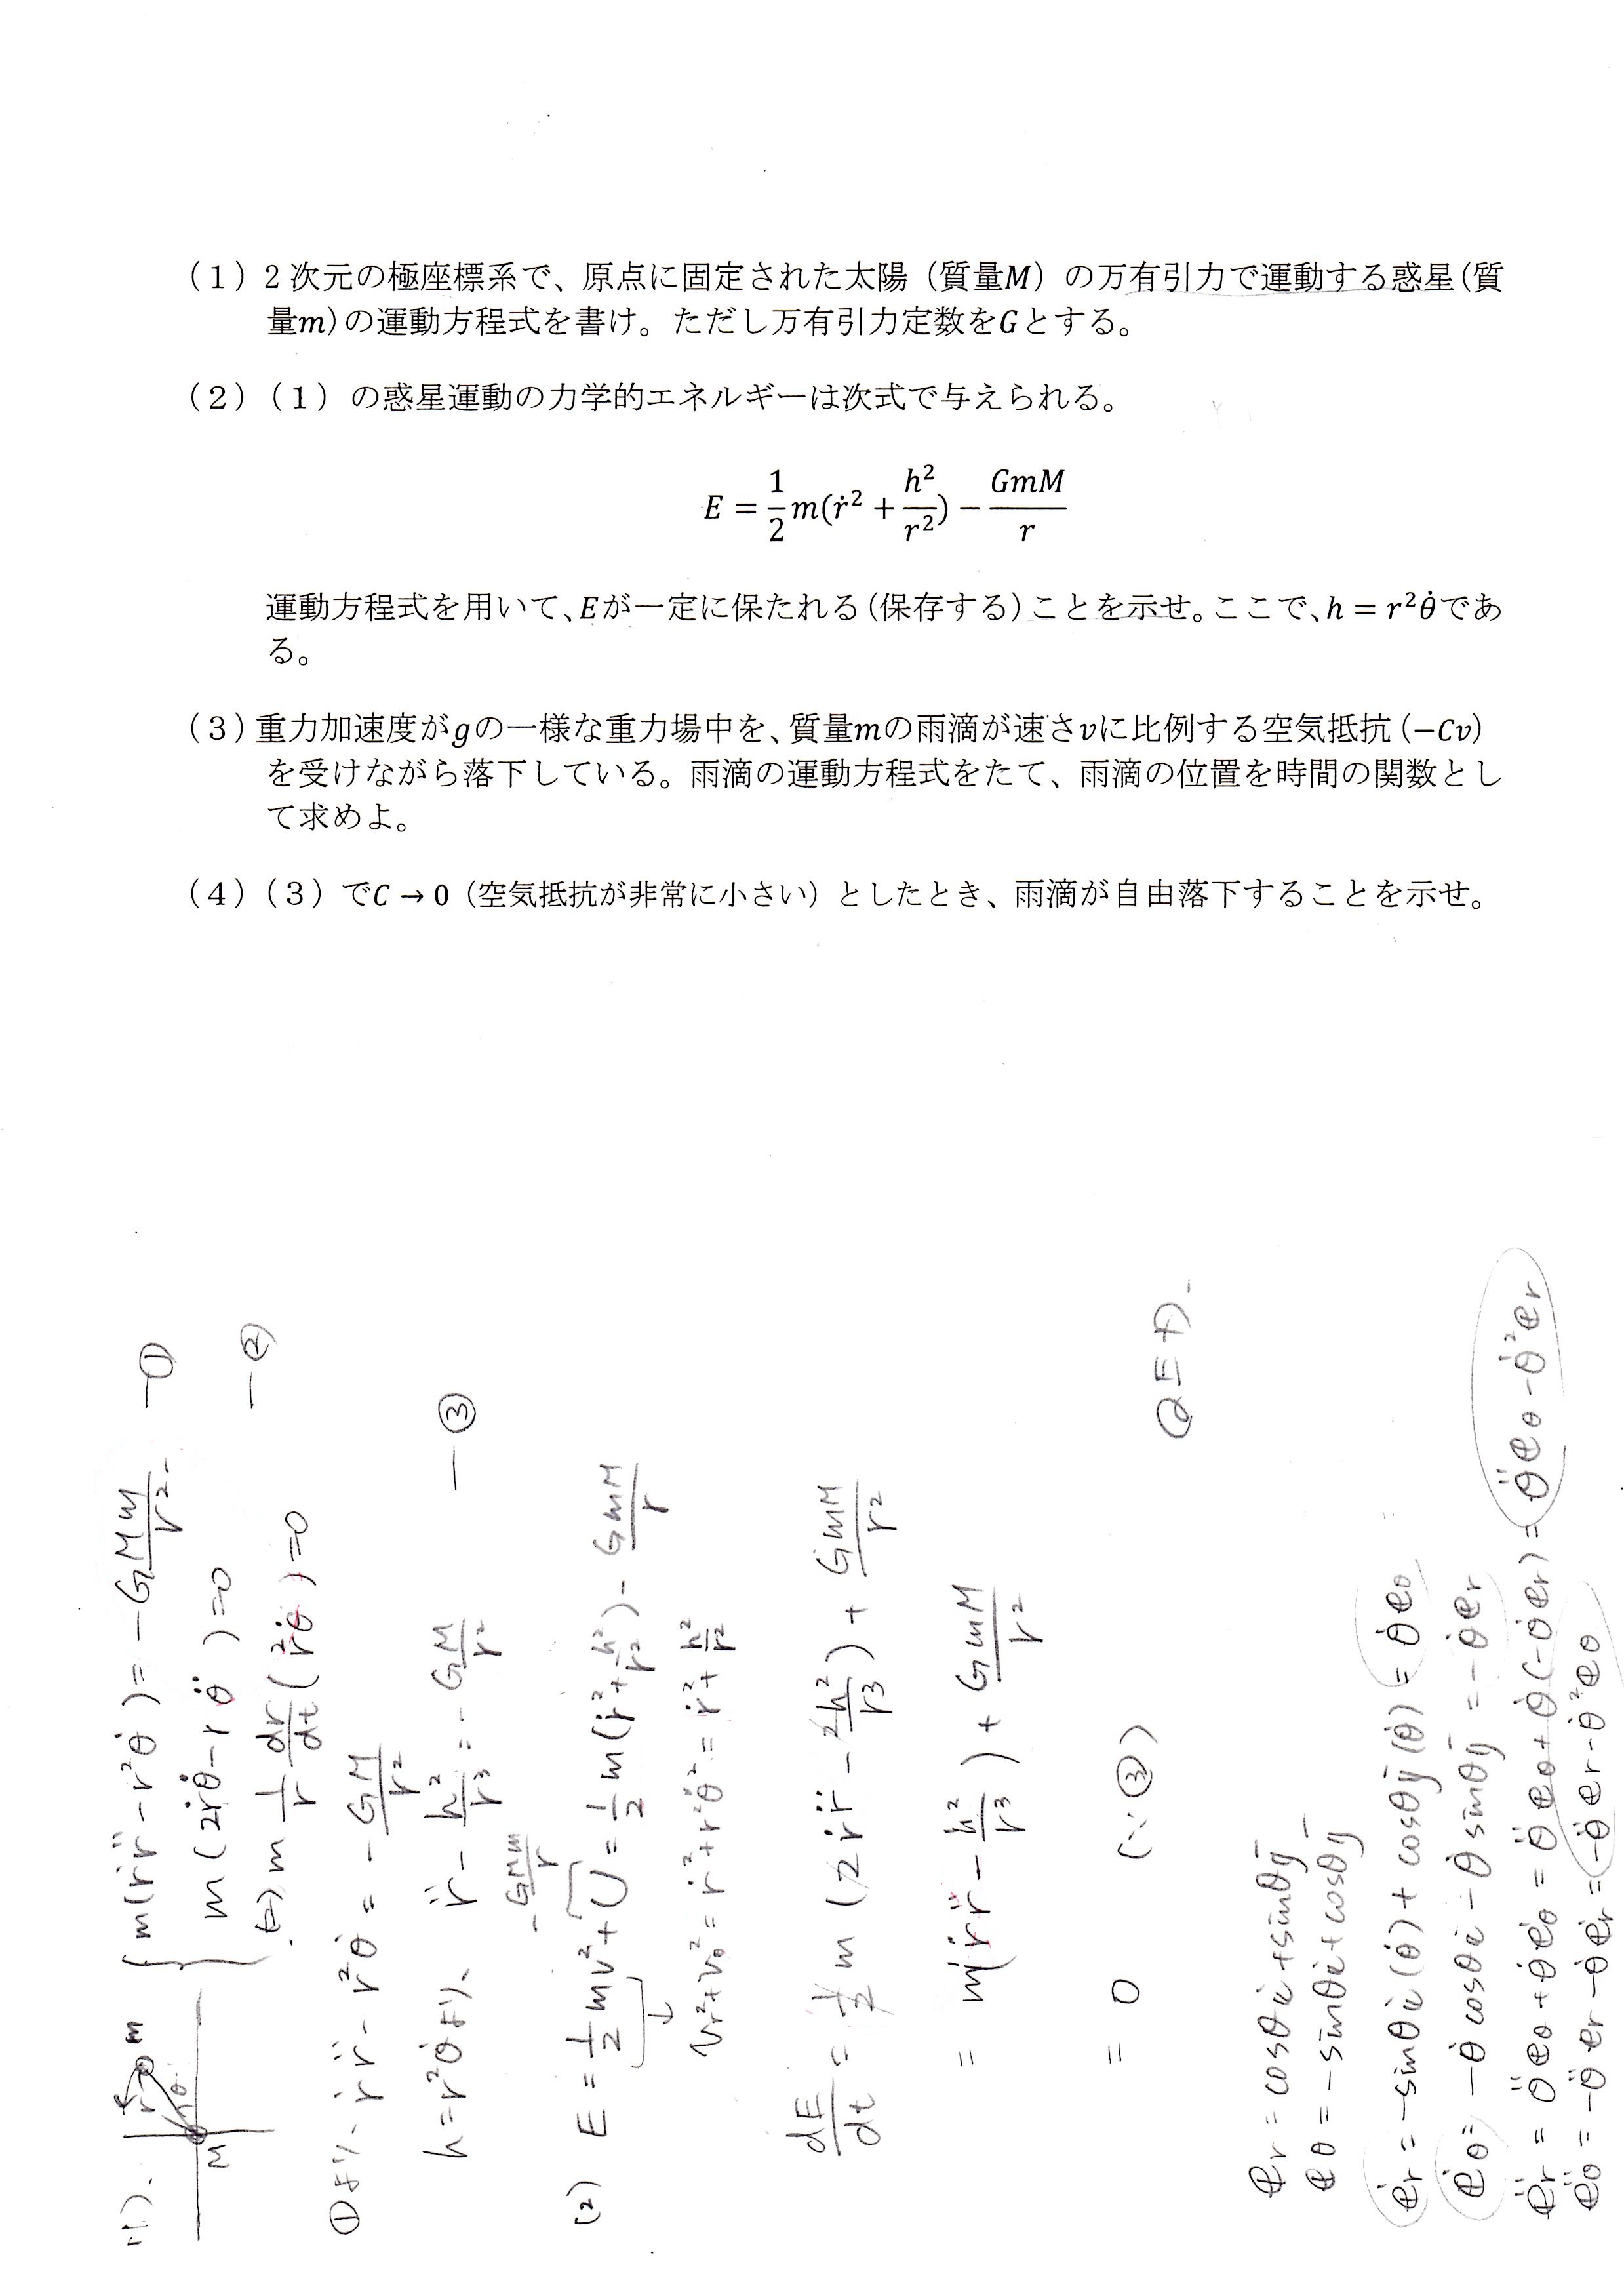 （１）2 次元の極座標系で、原点に固定された太陽（質量M）の万有引力で運動する惑星（質
量m）の運動方程式を書け。ただし万有引力定数をGとする。
（２）（１）の惑星運動の力学的エネルギーは次式で与えられる。
E = 1/2 m(ṙ² + h²/r²) − GmM/r
運動方程式を用いて、Eが一定に保たれる（保存する）ことを示せ。ここで、h = r²θ̇であ
る。
（３）重力加速度がgの一様な重力場中を、質量mの雨滴が速さvに比例する空気抵抗（−Cv）
を受けながら落下している。雨滴の運動方程式をたて、雨滴の位置を時間の関数とし
て求めよ。
（４）（３）でC → 0（空気抵抗が非常に小さい）としたとき、雨滴が自由落下することを示せ。
(1).
r m
θ
M
m(ṙr̈ - r²θ̇) = -G Mm/r² -①
m(2ṙθ̇ - rθ̈) = 0 -②
m 1/r dr/dt (r²θ̇) = 0
①より、ṙr̈ - r²θ̇ = - GM/r²
h = r²θ̇より、 r̈ - h²/r³ = - GM/r² -③
- GMm/r
(2) E = 1/2 mv² + U = 1/2 m(ṙ² + h²/r²) - GmM/r
↓
vr² + vθ² = ṙ² + r²θ̇² = ṙ² + h²/r²
dE/dt = 1/2 m (2ṙr̈ - 2h²/r³) + GmM/r²
= m(ṙr̈ - h²/r³) + GmM/r²
= 0 (∵③)
QED.
er = cosθi + sinθj
eθ = -sinθi + cosθj
ėr = -sinθi(θ̇) + cosθj(θ̇) = θ̇eθ
ėθ = -θ̇cosθi - θ̇sinθj = -θ̇er
ër = θ̈eθ + θ̇ėθ = θ̈eθ + θ̇(-θ̇er) = θ̈eθ - θ̇²er
ëθ = -θ̈er - θ̇ėr = -θ̈er - θ̇²eθ